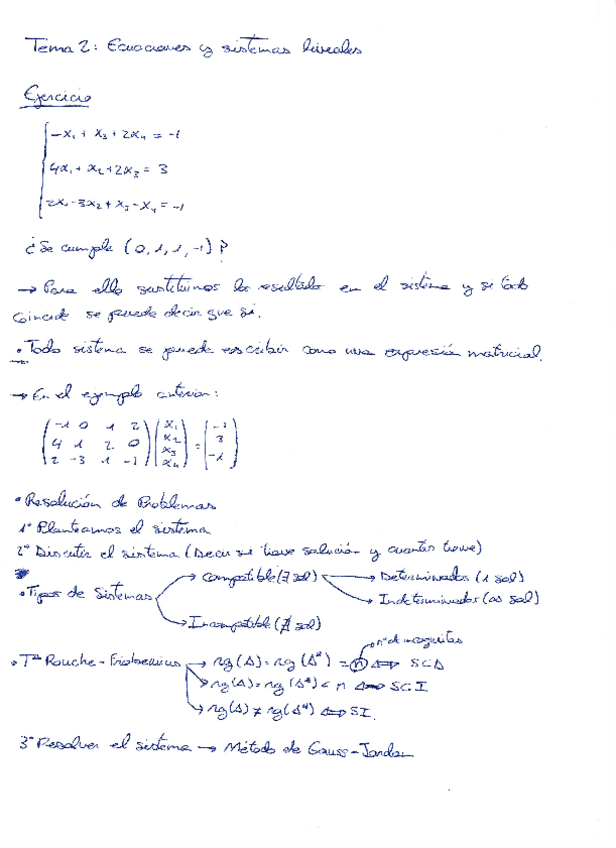 Tema 2: Ecuaciones y sistemas lineales
Ejercicio
-x₁ + x₃ + 2x₄ = -1
4x₁ + x₂ + 2x₃ = 3
2x₁ - 3x₂ + x₃ - x₄ = -1
¿Se cumple (0, 1, 1, -1)?
→ Para ello sustituimos los resultado en el sistema y si todo
coincide se puede decir que si.
• Todo sistema se puede escribir como una expresión matricial.
→ En el ejemplo anterior:
(-1 0 1 2) (x₁) (-1)
(4 1 2 0) (x₂) = (3)
(2 -3 1 -1) (x₃) (-1)
(x₄)
• Resolución de Problemas
1º Planteamos el sistema
2º Discutir el sistema (Decir si tiene solución y cuantas tiene)
• Tipos de Sistemas
→ Compatible (∃ sol)
→ Determinados (1 sol)
→ Indeterminados (∞ sol)
→ Incompatible (∄ sol)
nº de incognitas
• Tª Rouche-Frobenius → rg(A) = rg(A*) = n ⟺ SCD
→ rg(A) = rg(A*) < n ⟺ SCI
→ rg(A) ≠ rg(A*) ⟺ SI.
3º Resolver el sistema → Método de Gauss-Jordan